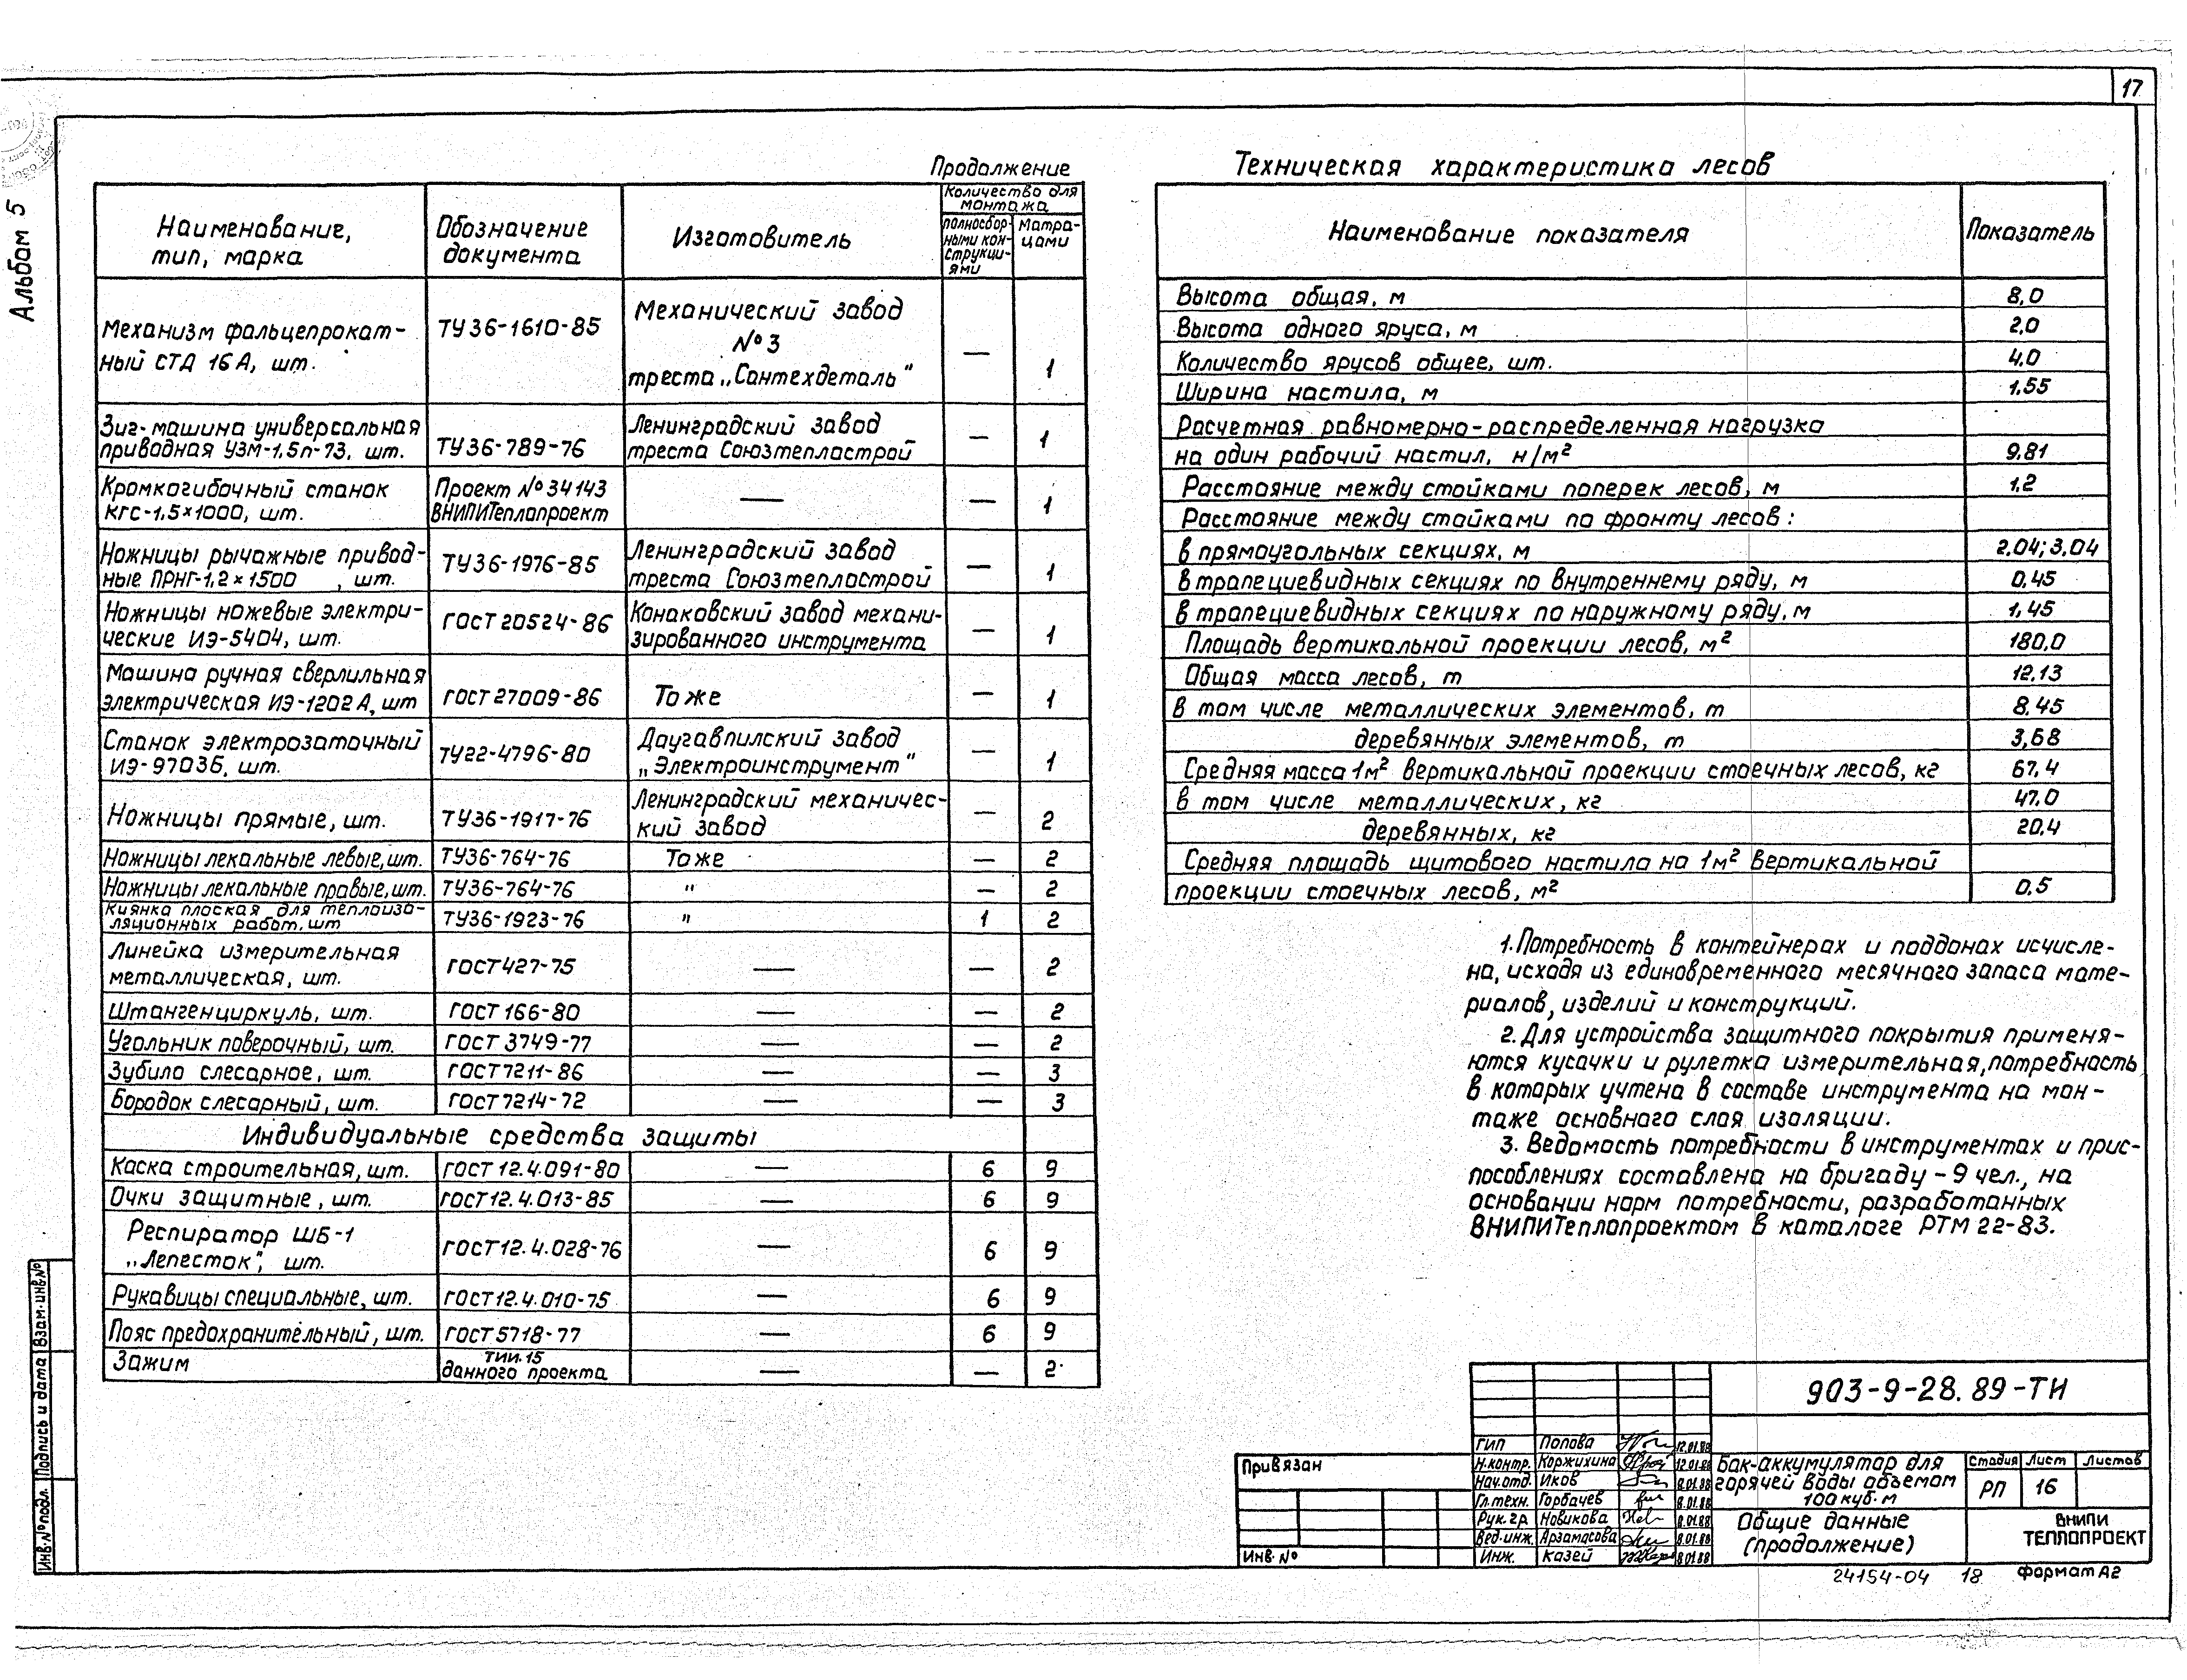 17
Альбом 5
Продолжение
Наименование,
тип, марка
Обозначение
документа
Изготовитель
Количество для
монтажа
полносбор-
ными кон-
струкци-
ями
матра-
цами
Механизм фальцепрокат-
ный СТД 16А, шт.
ТУ36-1610-85
Механический завод
№3
треста „Сантехдеталь"
— 1
Зиг-машина универсальная
приводная УЗМ-1,5п-73, шт.
ТУ36-789-76
Ленинградский завод
треста Союзтеплострой
— 1
Кромкогибочный станок
КГС-1,5×1000, шт.
Проект №34143
ВНИПИТеплопроект
— — 1
Ножницы рычажные привод-
ные ПРНГ-1,2×1500 , шт.
ТУ36-1976-85
Ленинградский завод
треста Союзтеплострой
— 1
Ножницы ножевые электри-
ческие ИЭ-5404, шт.
ГОСТ 20524-86
Конаковский завод механи-
зированного инструмента
— 1
Машина ручная сверлильная
электрическая ИЭ-1202А, шт
ГОСТ 27009-86
То же
— 1
Станок электрозаточный
ИЭ-9703Б, шт.
ТУ22-4796-80
Даугавпилский завод
„Электроинструмент"
— 1
Ножницы прямые, шт.
ТУ36-1917-76
Ленинградский механичес-
кий завод
— 2
Ножницы лекальные левые, шт. ТУ36-764-76 То же — 2
Ножницы лекальные правые, шт. ТУ36-764-76 " — 2
Киянка плоская для теплоизо-
ляционных работ, шт
ТУ36-1923-76 " 1 2
Линейка измерительная
металлическая, шт.
ГОСТ 427-75 — — 2
Штангенциркуль, шт. ГОСТ 166-80 — — 2
Угольник поверочный, шт. ГОСТ 3749-77 — — 2
Зубило слесарное, шт. ГОСТ 7211-86 — — 3
Бородок слесарный, шт. ГОСТ 7214-72 — — 3
Индивидуальные средства защиты
Каска строительная, шт. ГОСТ 12.4.091-80 — 6 9
Очки защитные, шт. ГОСТ 12.4.013-85 — 6 9
Респиратор ШБ-1
„Лепесток", шт.
ГОСТ 12.4.028-76 — 6 9
Рукавицы специальные, шт. ГОСТ 12.4.010-75 — 6 9
Пояс предохранительный, шт. ГОСТ 5718-77 — 6 9
Зажим
ТИИ.15
данного проекта
— — 2
Техническая характеристика лесов
Наименование показателя Показатель
Высота общая, м 8,0
Высота одного яруса, м 2,0
Количество ярусов общее, шт. 4,0
Ширина настила, м 1,55
Расчетная равномерно-распределенная нагрузка
на один рабочий настил, н/м² 9,81
Расстояние между стойками поперек лесов, м 1,2
Расстояние между стойками по фронту лесов:
в прямоугольных секциях, м 2,04; 3,04
в трапециевидных секциях по внутреннему ряду, м 0,45
в трапециевидных секциях по наружному ряду, м 1,45
Площадь вертикальной проекции лесов, м² 180,0
Общая масса лесов, т 12,13
в том числе металлических элементов, т 8,45
деревянных элементов, т 3,68
Средняя масса 1м² вертикальной проекции стоечных лесов, кг 67,4
в том числе металлических, кг 47,0
деревянных, кг 20,4
Средняя площадь щитового настила на 1м² вертикальной
проекции стоечных лесов, м² 0,5
1. Потребность в контейнерах и поддонах исчисле-
на, исходя из единовременного месячного запаса мате-
риалов, изделий и конструкций.
2. Для устройства защитного покрытия применя-
ются кусачки и рулетка измерительная, потребность
в которых учтена в составе инструмента на мон-
таже основного слоя изоляции.
3. Ведомость потребности в инструментах и прис-
пособлениях составлена на бригаду - 9 чел., на
основании норм потребности, разработанных
ВНИПИТеплопроектом в каталоге РТМ 22-83.
903-9-28.89-ТИ
ГИП Попова 12.01.88
Н.контр. Коржихина 12.01.88
Нач.отд. Иков 8.01.88
Гл.техн. Горбачев 8.01.88
Рук.гр. Новикова 8.01.88
Вед.инж. Арзамасова 8.01.88
Инж. Казей 8.01.88
Привязан
Инв.№
Бак-аккумулятор для
горячей воды объемом
100 куб.м
Стадия Лист Листов
РП 16
Общие данные
(продолжение)
ВНИПИ
ТЕПЛОПРОЕКТ
24154-04 18 Формат А2
Инв.№подл. Подпись и дата Взам.инв.№